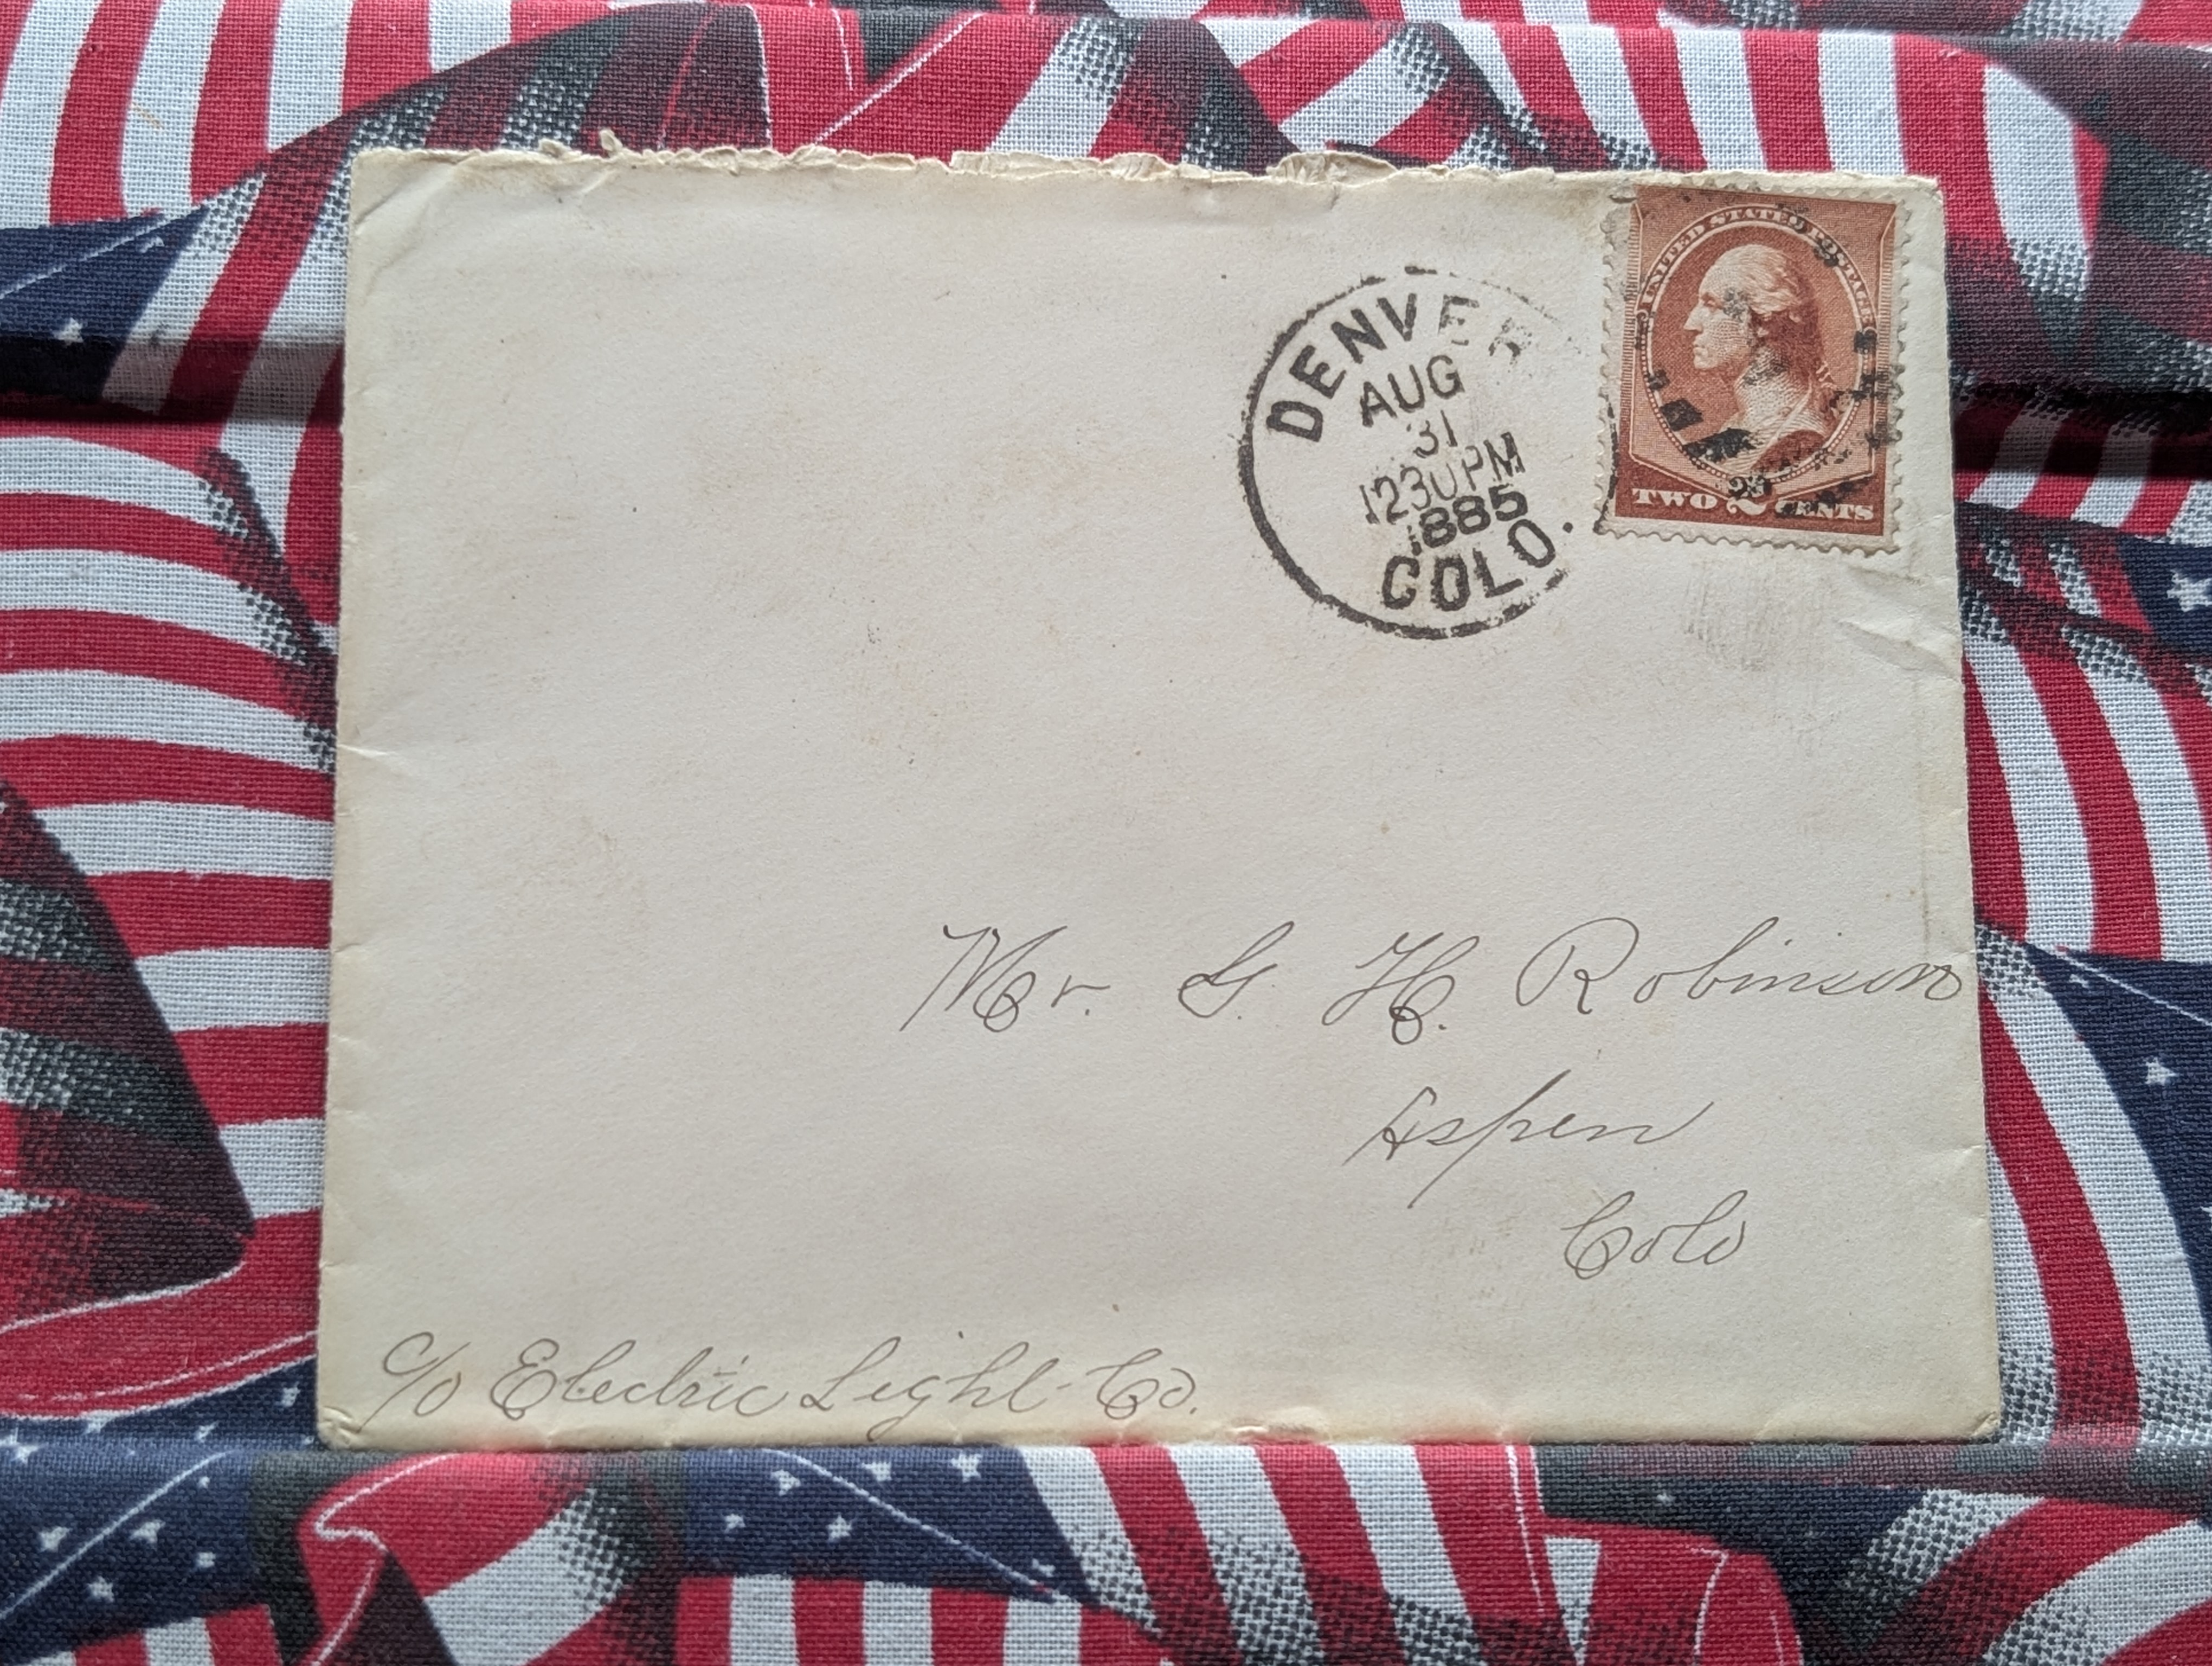 UNITED STATES POSTAGE
TWO 2 CENTS
DENVER
AUG
31
1230PM
1885
COLO.
Mr. G. H. Robinson
Aspen
Colo
c/o Electric Light Co.